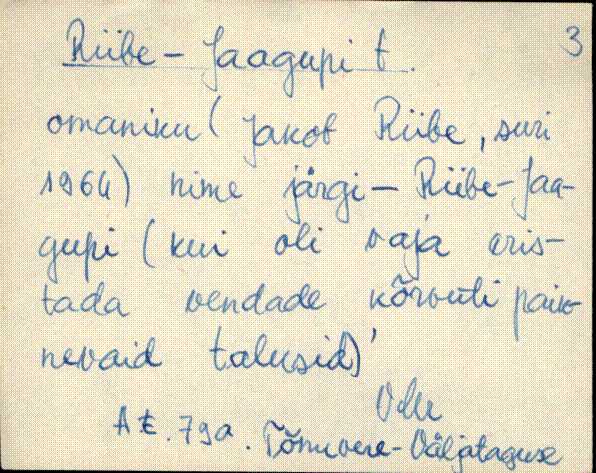 3
Riibe-Jaagupi t.
omaniku (Jakob Riibe, suri
1964) nime järgi - Riibe-Jaa-
gupi (kui oli vaja eris-
tada vendade kõrvuti paik-
nevaid talusid)
A. 79a. Tõnuvere-Väljataguse